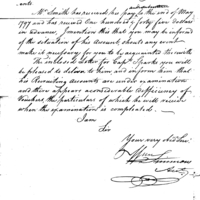 Mr Smith has received his pay to the end of May
1797 and has received One hundred & forty four dollars
in advance, I mention this that you may be informed
of the situation of his Account should any event
make it necessary for you to
The inclosed letter for Capt Sparks you will
be pleased to deliver to him and inform him that
his Recruiting accounts are under examination
and there appears a considerable deficiency of
Vouchers the particulars of which he will receive
when the examination is compleated.
I am
Sir
Your very obd Ser